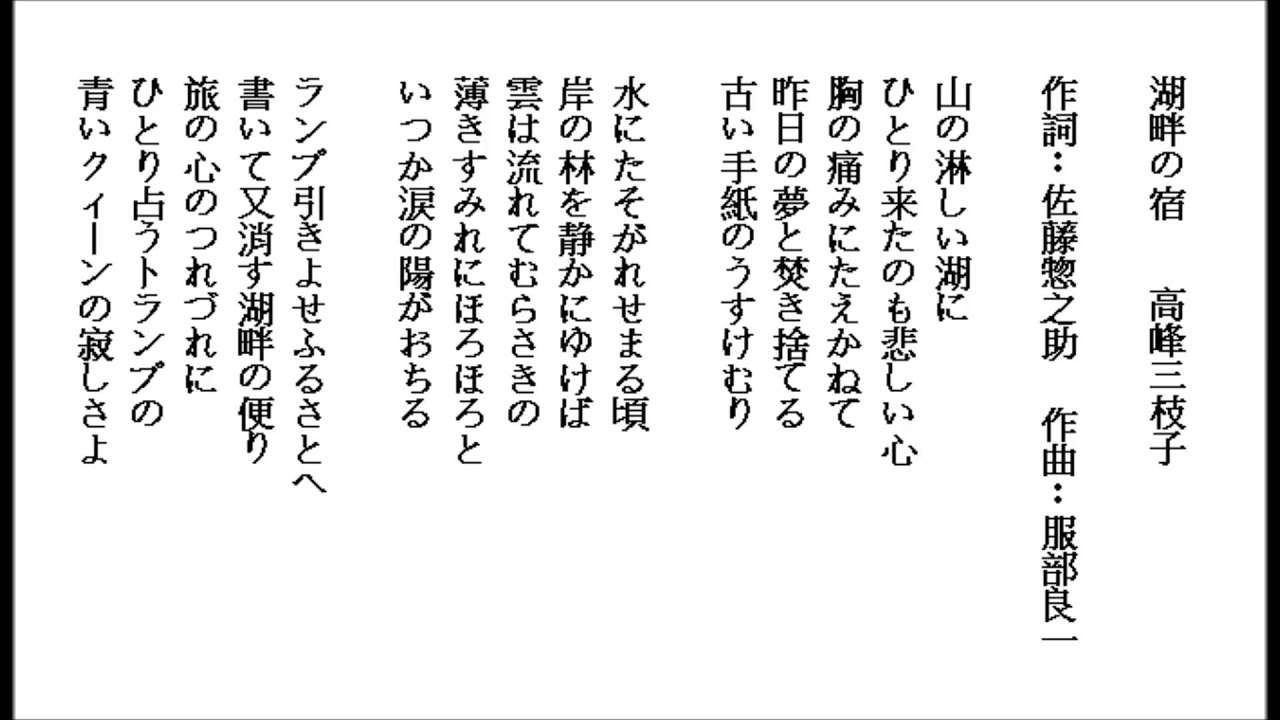 湖畔の宿　高峰三枝子
作詞：佐藤惣之助　作曲：服部良一
山の淋しい湖に
ひとり来たのも悲しい心
胸の痛みにたえかねて
昨日の夢と焚き捨てる
古い手紙のうすけむり
水にたそがれせまる頃
岸の林を静かにゆけば
雲は流れてむらさきの
薄きすみれにほろほろと
いつか涙の陽がおちる
ランプ引きよせふるさとへ
書いて又消す湖畔の便り
旅の心のつれづれに
ひとり占うトランプの
青いクィーンの寂しさよ